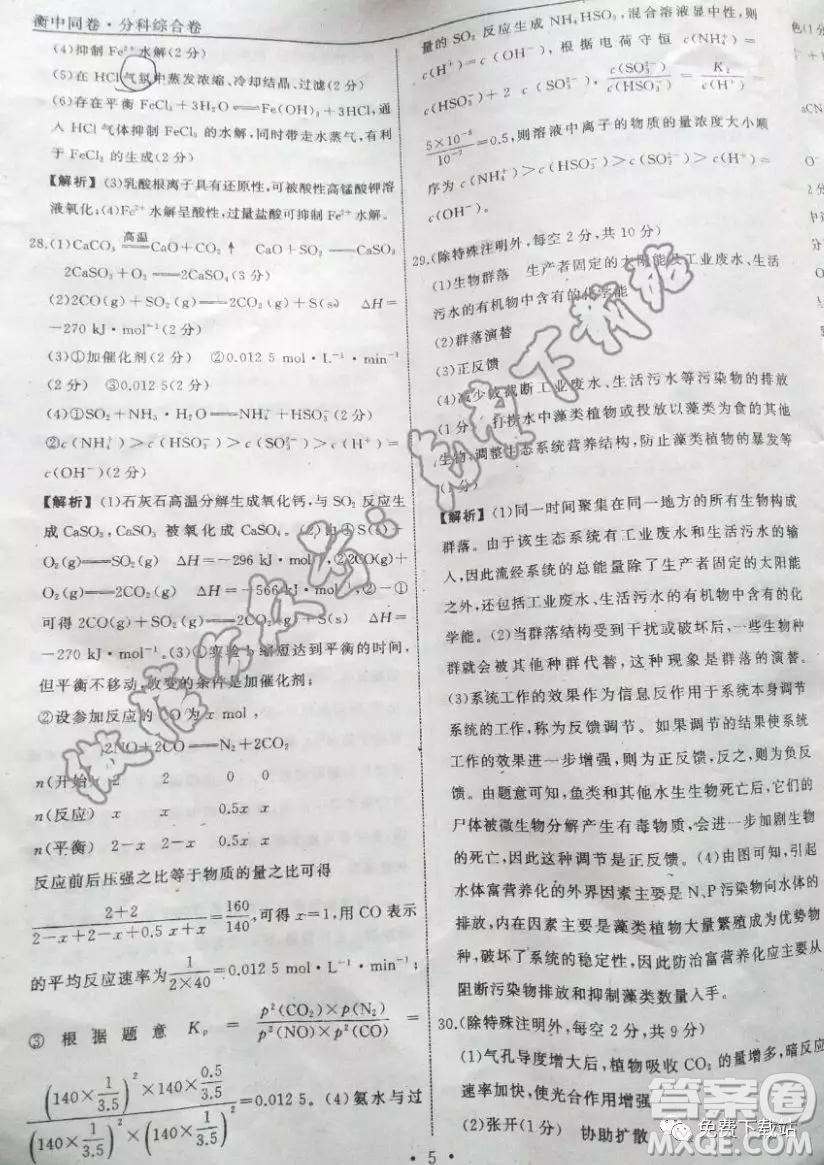 衡中同卷·分科综合卷
(4)抑制Fe²⁺水解(2分)
(5)在HCl气氛中蒸发浓缩、冷却结晶、过滤(2分)
(6)存在平衡FeCl₃+3H₂O⇌Fe(OH)₃+3HCl,通
入HCl气体抑制FeCl₃的水解,同时带走水蒸气,有利
于FeCl₃的生成(2分)
【解析】(3)乳酸根离子具有还原性,可被酸性高锰酸钾溶
液氧化;(4)Fe²⁺水解呈酸性,过量盐酸可抑制Fe²⁺水解。
28.(1)CaCO₃ 高温 CaO+CO₂↑ CaO+SO₂══CaSO₃
2CaSO₃+O₂══2CaSO₄(3分)
(2)2CO(g)+SO₂(g)══2CO₂(g)+S(s) ΔH=
-270 kJ·mol⁻¹(2分)
(3)①加催化剂(2分) ②0.012 5 mol·L⁻¹·min⁻¹
(2分) ③0.012 5(2分)
(4)①SO₂+NH₃·H₂O══NH₄HSO₃(2分)
②c(NH₄⁺)>c(HSO₃⁻)>c(SO₃²⁻)>c(H⁺)=
c(OH⁻)(2分)
【解析】(1)石灰石高温分解生成氧化钙,与SO₂反应生
成CaSO₃,CaSO₃被氧化成CaSO₄。(2)由①S(s)+
O₂(g)══SO₂(g) ΔH=-296 kJ·mol⁻¹,②2CO(g)+
O₂(g)══2CO₂(g) ΔH=-566 kJ·mol⁻¹,②-①
可得2CO(g)+SO₂(g)══2CO₂(g)+S(s) ΔH=
-270 kJ·mol⁻¹。(3)①实验b缩短达到平衡的时间,
但平衡不移动,改变的条件是加催化剂;
②设参加反应的CO为x mol,
2NO+2CO══N₂+2CO₂
n(开始) 2 2 0 0
n(反应) x x 0.5x x
n(平衡) 2-x 2-x 0.5x x
反应前后压强之比等于物质的量之比可得
(2+2)/(2-x+2-x+0.5x+x)=160/140,可得x=1,用CO表示
的平均反应速率为1/(2×40)=0.012 5 mol·L⁻¹·min⁻¹;
③根据题意Kₚ=p²(CO₂)×p(N₂)/(p²(NO)×p²(CO))=
(140×1/3.5)²×140×0.5/3.5/((140×1/3.5)²×(140×1/3.5)²)=0.012 5。(4)氨水与过
量的SO₂反应生成NH₄HSO₃,混合溶液显中性,则
c(H⁺)=c(OH⁻),根据电荷守恒c(NH₄⁺)=
c(HSO₃⁻)+2c(SO₃²⁻),c(SO₃²⁻)/c(HSO₃⁻)=K₂/c(H⁺)=
5×10⁻⁸/10⁻⁷=0.5,则溶液中离子的物质的量浓度大小顺
序为c(NH₄⁺)>c(HSO₃⁻)>c(SO₃²⁻)>c(H⁺)=
c(OH⁻)。
29.(除特殊注明外,每空2分,共10分)
(1)生物群落 生产者固定的太阳能及工业废水、生活
污水的有机物中含有的化学能
(2)群落演替
(3)正反馈
(4)减少或截断工业废水、生活污水等污染物的排放
(1分) 打捞水中藻类植物或投放以藻类为食的其他
生物,调整生态系统营养结构,防止藻类植物的暴发等
(1分)
【解析】(1)同一时间聚集在同一地方的所有生物构成
群落。由于该生态系统有工业废水和生活污水的输
入,因此流经系统的总能量除了生产者固定的太阳能
之外,还包括工业废水、生活污水的有机物中含有的化
学能。(2)当群落结构受到干扰或破坏后,一些生物种
群就会被其他种群代替,这种现象是群落的演替。
(3)系统工作的效果作为信息反作用于系统本身调节
系统的工作,称为反馈调节。如果调节的结果使系统
工作的效果进一步增强,则为正反馈,反之,则为负反
馈。由题意可知,鱼类和其他水生生物死亡后,它们的
尸体被微生物分解产生有毒物质,会进一步加剧生物
死亡,因此这种调节是正反馈。(4)由图可知,引起
水体富营养化的外界因素主要是N、P污染物向水体的
排放,内在因素主要是藻类植物大量繁殖成为优势物
种,破坏了系统的稳定性,因此防治富营养化应主要从
阻断污染物排放和抑制藻类数量入手。
30.(除特殊注明外,每空2分,共9分)
(1)气孔导度增大后,植物吸收CO₂的量增多,暗反应
速率加快,使光合作用增强
(2)张开(1分) 协助扩散
·5·
答案圈
免费下载站